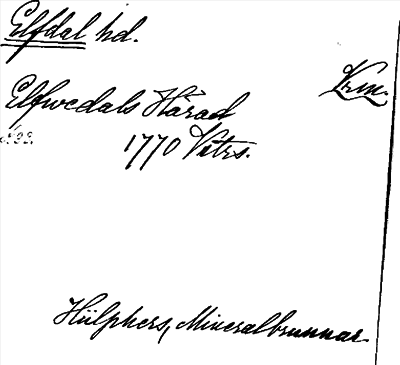 Elfdal hd.
Vrm.
Elfwedals Härad
1770 Vitrs.
Hülphers, Mineralbrunnar